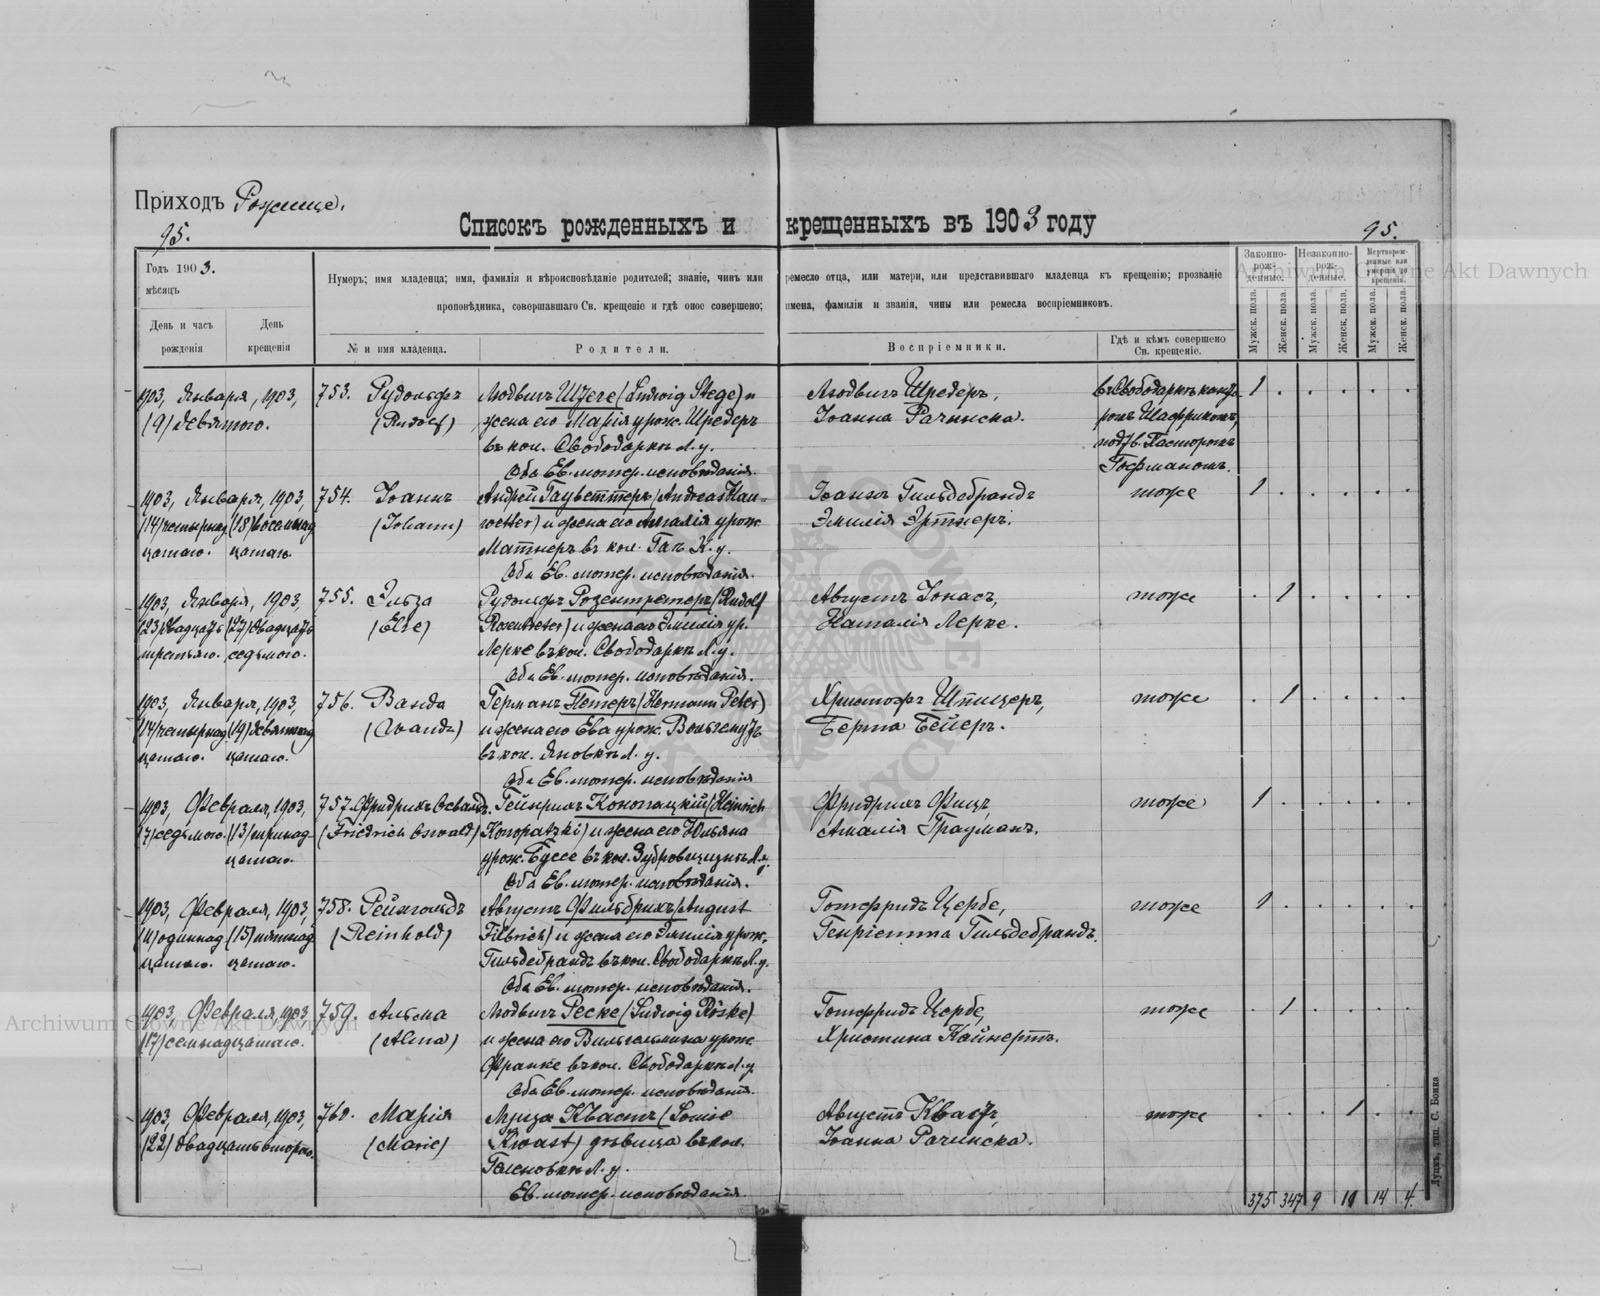 Приходъ Рожище.
95.
Списокъ рожденныхъ и крещенныхъ въ 1903 году
95.
Годъ 1903.
мѣсяцъ
День и часъ рожденія
День крещенія
Нумеръ; имя младенца; имя, фамилія и вѣроисповѣданіе родителей; званіе, чинъ или ремесло отца, или матери, или представившаго младенца къ крещенію; прозваніе
проповѣдника, совершавшаго Св. крещеніе и гдѣ оное совершено; имена, фамиліи и званія, чины или ремесла воспріемниковъ.
№ и имя младенца.
Родители.
Воспріемники.
Гдѣ и кѣмъ совершено Св. крещеніе.
Законно-рож-денные.
Незаконно-рож-денные.
Мертворож-денные или умершіе до крещенія.
Мужск. пола.
Женск. пола.
Мужск. пола.
Женск. пола.
Мужск. пола.
Женск. пола.
1903, Января, 1903, 753. Рудольфъ Людвигъ Штеге (Ludwig Stege) и Людвигъ Шредеръ, въ Свободаркѣ канто- 1 . . . . .
(9) девятого. (Rudolf) жена его Марія урож. Шредеръ Іоанна Рачинска. ромъ Шаффрикомъ,
въ кол. Свободаркѣ Л. у. подтв. Пасторомъ
Оба Ев. лютер. исповѣданія. Гофманомъ.
1903, Января, 1903, 754. Іоаннъ Андрей Гауветтеръ (Andreas Hau- Іоаннъ Гильдебрандъ тоже 1 . . . . .
(14) четырнад (18) восемнад (Johann) wetter) и жена его Амалія урож. Эмилія Эртнеръ.
цатаго. цатаго. Матнеръ въ кол. К. у.
Оба Ев. лютер. исповѣданія.
1903, Января, 1903, 755. Эльза Рудольфъ Розентретеръ (Rudolf Августъ Іонасъ, тоже . 1 . . . .
(23) двадцать (27) двадцать (Else) Rosentreter) и жена его Эмилія ур. Наталія Лерке.
третьяго. седьмого. Лерке въ кол. Свободаркѣ Л. у.
Оба Ев. лютер. исповѣданія.
1903, Января, 1903, 756. Ванда Германъ Петеръ (Hermann Peter) Христофъ Шпицеръ, тоже . 1 . . . .
(14) четырнад (19) девятнад (Wanda) и жена его Ева урож. Вольгемутъ Берта Бейеръ.
цатаго. цатаго. въ кол. Яновкѣ Л. у.
Оба Ев. лютер. исповѣданія
1903, Февраля, 1903, 757. Фридрихъ Освальдъ Гейнрихъ Конопацкій (Heinrich Фридрихъ Фицъ, тоже 1 . . . . .
(7) седьмого. (13) тринад- (Friedrich Oswald) Konopatzki) и жена его Юльяна Амалія Грауманъ.
цатаго. урож. Буссе въ кол. Зубровщинѣ Л. у.
Оба Ев. лютер. исповѣданія.
1903, Февраля, 1903, 758. Рейнгольдъ Августъ Фильбрихъ (August Готфридъ Цербе, тоже 1 . . . . .
(11) одиннад (15) пятнад (Reinhold) Filbrich) и жена его Эмилія урож. Генріетта Гильдебрандъ.
цатаго. цатаго. Гильдебрандъ въ кол. Свободаркѣ Л. у.
Оба Ев. лютер. исповѣданія.
1903, Февраля, 1903 759. Альма Людвигъ Реске (Ludwig Röske) Готфридъ Цербе, тоже . 1 . . . .
(17) семнадцатаго. (Alma) и жена его Вильгельмина урож. Христина Кайнертъ.
Франке въ кол. Свободаркѣ Л. у.
Оба Ев. лютер. исповѣданія.
1903, Февраля, 1903, 760. Марія Луиза Квастъ (Louise Августъ Квастъ, тоже . . . 1 . .
(22) двадцать второго. (Marie) Kwast) дѣвица въ кол. Іоанна Рачинска.
Галеновкѣ Л. у.
Ев. лютер. исповѣданія.
375 347 9 11 14 4.
Луцкъ, тип. С. Бонка
Archiwum Główne Akt Dawnych
Archiwum Główne Akt Dawnych